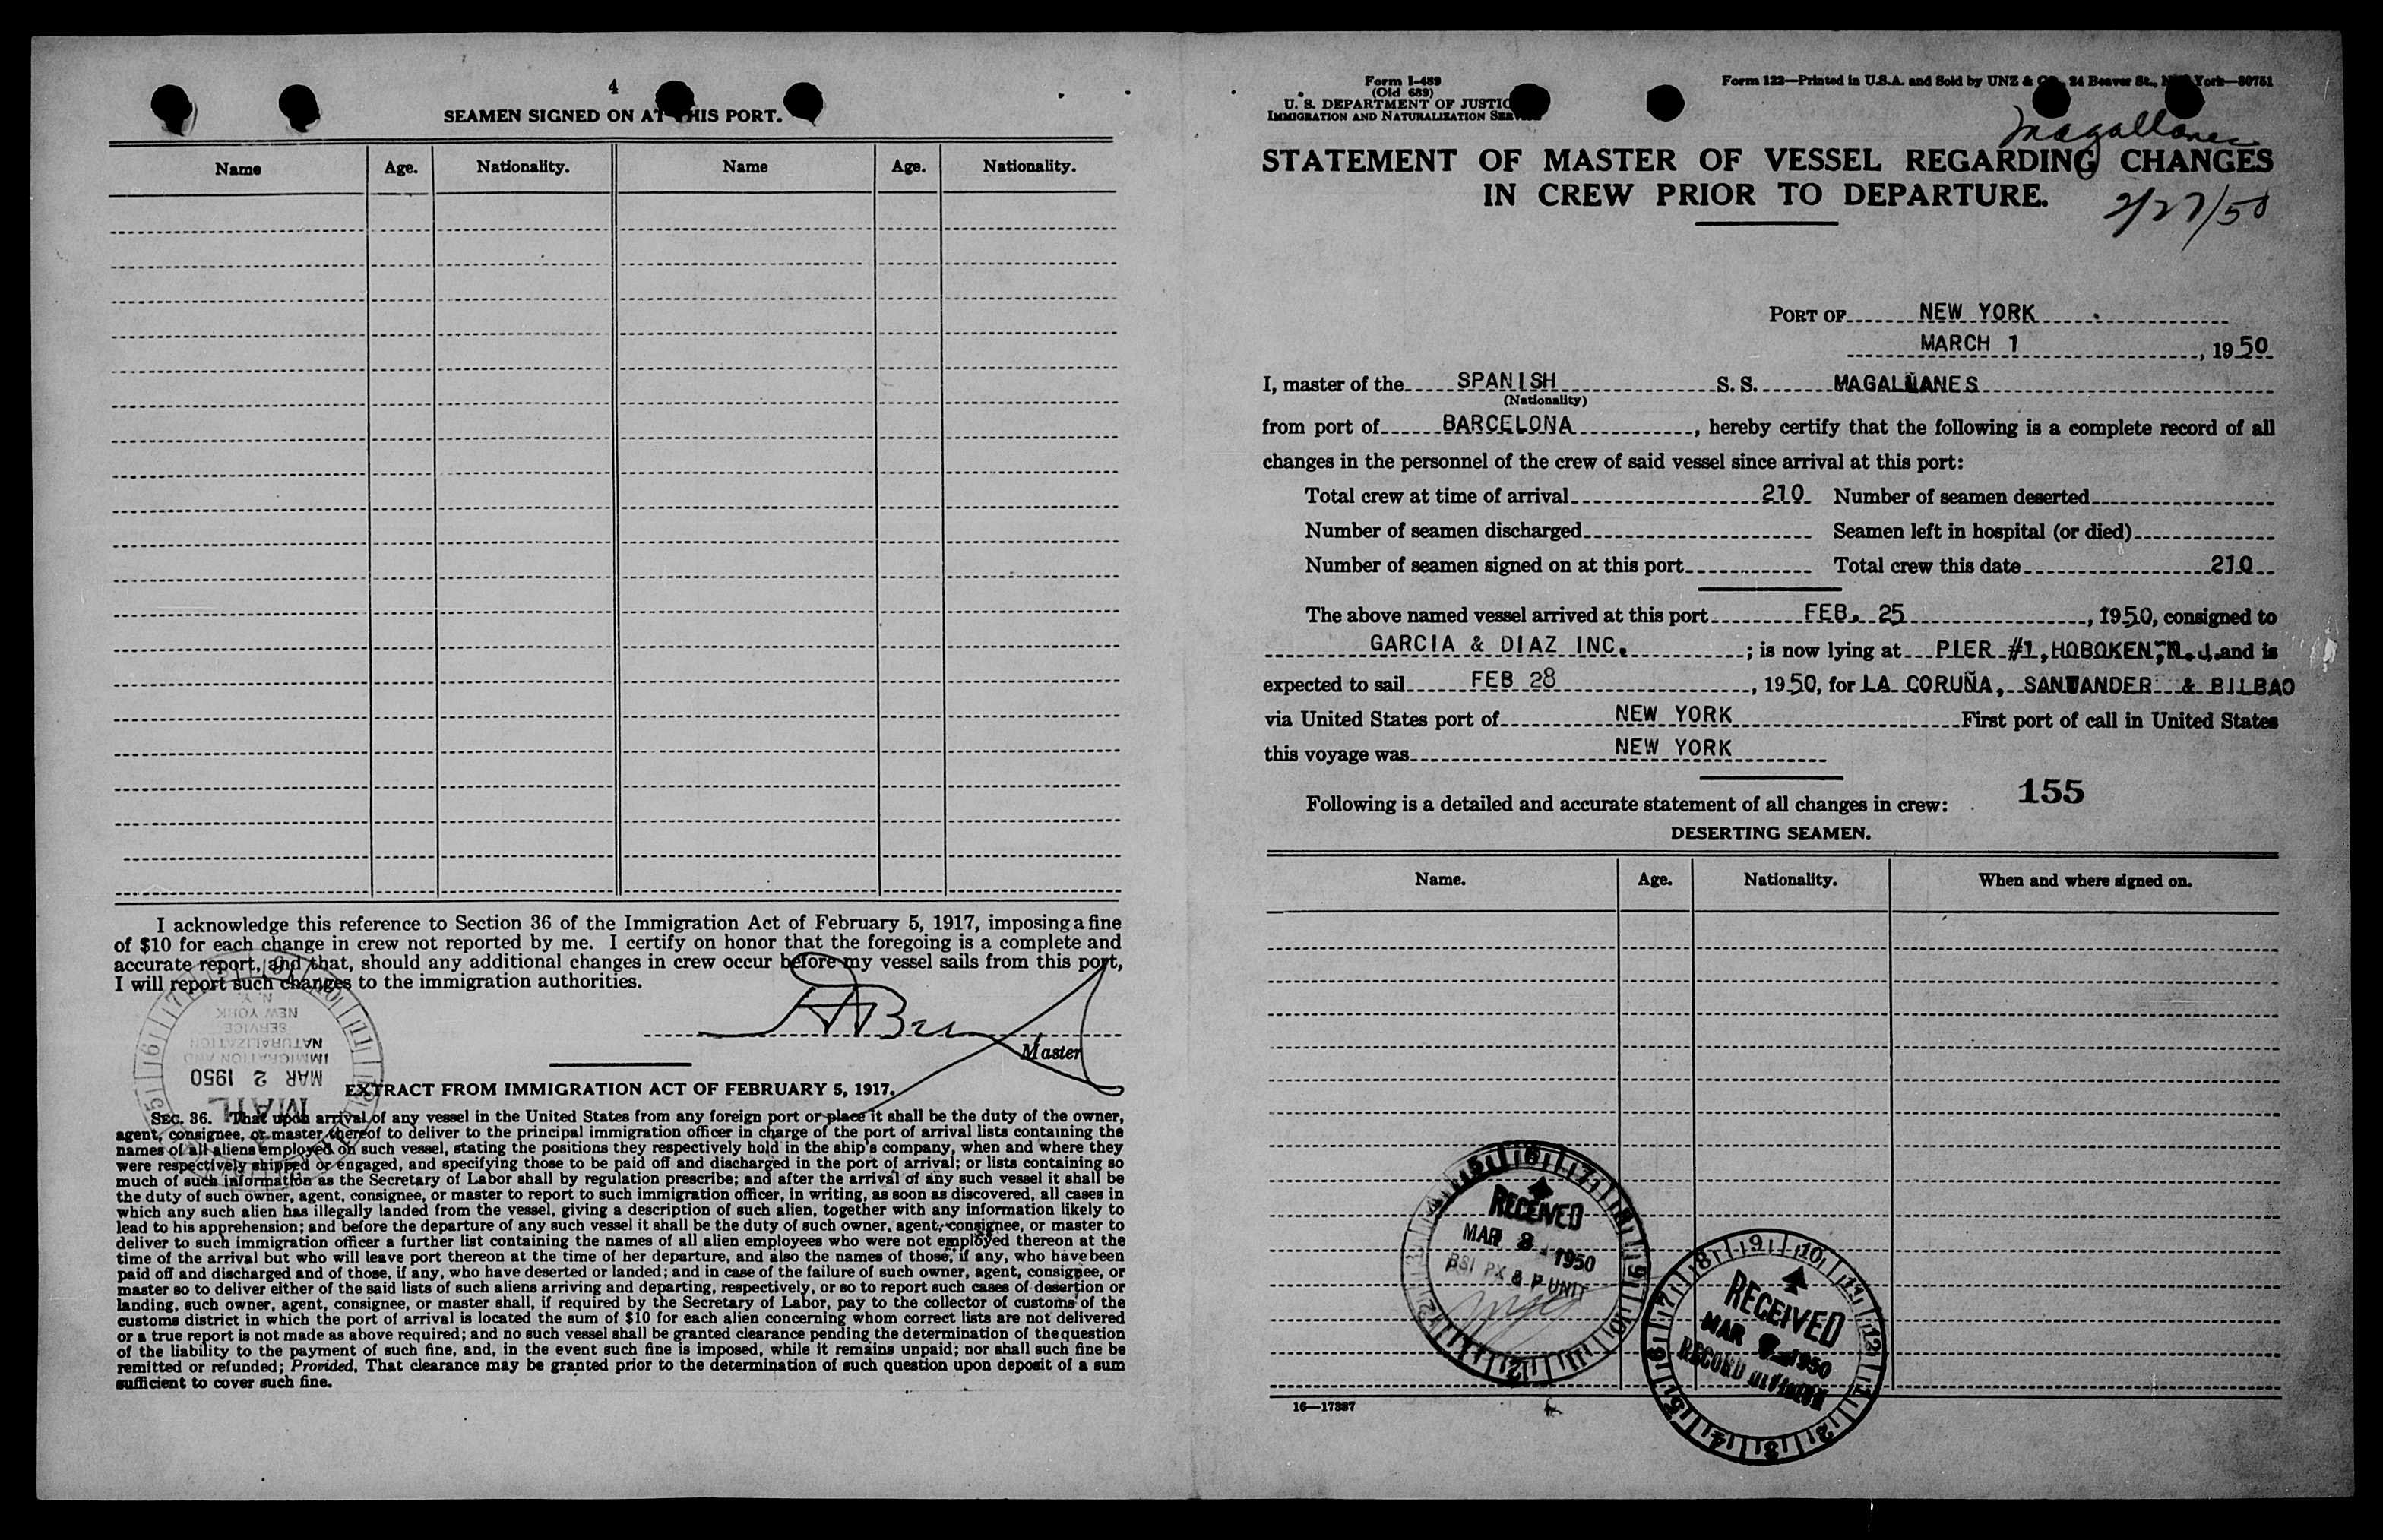 4
SEAMEN SIGNED ON AT THIS PORT.
Name Age. Nationality. Name Age. Nationality.
I acknowledge this reference to Section 36 of the Immigration Act of February 5, 1917, imposing a fine
of $10 for each change in crew not reported by me. I certify on honor that the foregoing is a complete and
accurate report, and that, should any additional changes in crew occur before my vessel sails from this port,
I will report such changes to the immigration authorities.
Master
N. Y.
NEW YORK
SERVICE
NATURALIZATION
IMMIGRATION AND
MAR 2 1950
MAIL
EXTRACT FROM IMMIGRATION ACT OF FEBRUARY 5, 1917.
SEC. 36. That upon arrival of any vessel in the United States from any foreign port or place it shall be the duty of the owner,
agent, consignee, or master thereof to deliver to the principal immigration officer in charge of the port of arrival lists containing the
names of all aliens employed on such vessel, stating the positions they respectively hold in the ship's company, when and where they
were respectively shipped or engaged, and specifying those to be paid off and discharged in the port of arrival; or lists containing so
much of such information as the Secretary of Labor shall by regulation prescribe; and after the arrival of any such vessel it shall be
the duty of such owner, agent, consignee, or master to report to such immigration officer, in writing, as soon as discovered, all cases in
which any such alien has illegally landed from the vessel, giving a description of such alien, together with any information likely to
lead to his apprehension; and before the departure of any such vessel it shall be the duty of such owner, agent, consignee, or master to
deliver to such immigration officer a further list containing the names of all alien employees who were not employed thereon at the
time of the arrival but who will leave port thereon at the time of her departure, and also the names of those, if any, who have been
paid off and discharged and of those, if any, who have deserted or landed; and in case of the failure of such owner, agent, consignee, or
master so to deliver either of the said lists of such aliens arriving and departing, respectively, or so to report such cases of desertion or
landing, such owner, agent, consignee, or master shall, if required by the Secretary of Labor, pay to the collector of customs of the
customs district in which the port of arrival is located the sum of $10 for each alien concerning whom correct lists are not delivered
or a true report is not made as above required; and no such vessel shall be granted clearance pending the determination of the question
of the liability to the payment of such fine, and, in the event such fine is imposed, while it remains unpaid; nor shall such fine be
remitted or refunded; Provided, That clearance may be granted prior to the determination of such question upon deposit of a sum
sufficient to cover such fine.
Form I-489
(Old 689)
U. S. DEPARTMENT OF JUSTICE
IMMIGRATION AND NATURALIZATION SERVICE
Form 122—Printed in U.S.A. and Sold by UNZ & CO., 24 Beaver St., New York—80751
Magallanes
STATEMENT OF MASTER OF VESSEL REGARDING CHANGES
IN CREW PRIOR TO DEPARTURE.
2/27/50
PORT OF NEW YORK
MARCH 1, 1950
I, master of the SPANISH S. S. MAGALLANES
(Nationality)
from port of BARCELONA, hereby certify that the following is a complete record of all
changes in the personnel of the crew of said vessel since arrival at this port:
Total crew at time of arrival 210 Number of seamen deserted
Number of seamen discharged Seamen left in hospital (or died)
Number of seamen signed on at this port Total crew this date 210
The above named vessel arrived at this port FEB. 25, 1950, consigned to
GARCIA & DIAZ INC.; is now lying at PIER #1, HOBOKEN, N. J. and is
expected to sail FEB 28, 1950, for LA CORUÑA, SANTANDER & BILBAO
via United States port of NEW YORK First port of call in United States
this voyage was NEW YORK
155
Following is a detailed and accurate statement of all changes in crew:
DESERTING SEAMEN.
Name. Age. Nationality. When and where signed on.
RECEIVED
MAR 8 - 1950
BSI PX & P UNIT
RECEIVED
MAR 1950
RECORD DIVISION
16—17387